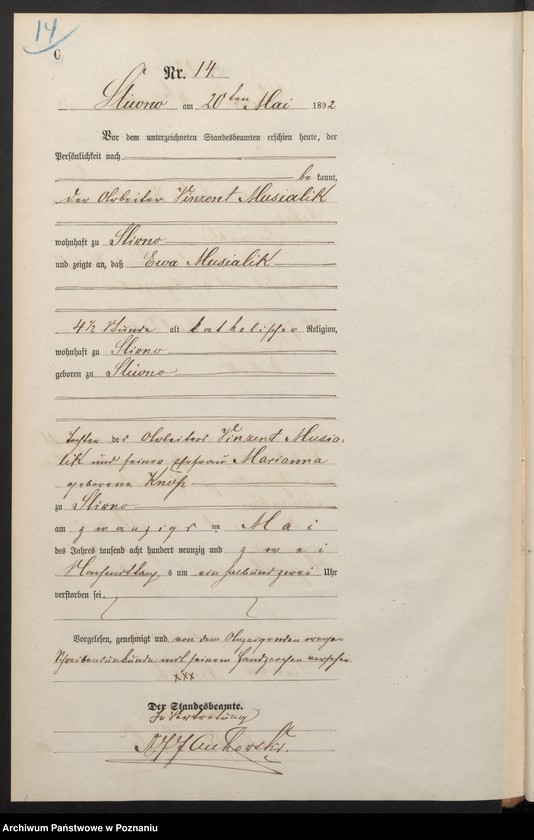 14
C
Nr. 14.
Sliwno am 20ten Mai 1892
Vor dem unterzeichneten Standesbeamten erschien heute, der
Persönlichkeit nach
bekannt,
der Arbeiter Vinzent Musialik
wohnhaft zu Sliwno
und zeigte an, daß Ewa Musialik
4½ Stunde alt katholischer Religion,
wohnhaft zu Sliwno
geboren zu Sliwno
Tochter des Arbeiters Vinzent Musia-
lik und seiner Ehefrau Marianna
geborene
zu Sliwno
am zwanzigsten Mai
des Jahres tausend acht hundert neunzig und zwei
Nachmittags um ein halb und zwei Uhr
verstorben sei.
Vorgelesen, genehmigt und von dem Anzeigenden wegen
Schreibensunkunde mit seinem Handzeichen versehen.
xxx
Der Standesbeamte.
In Vertretung
Archiwum Państwowe w Poznaniu